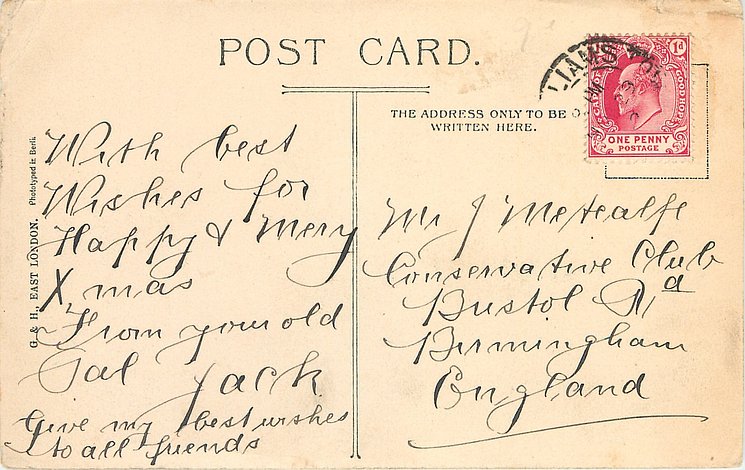 POST CARD.
THE ADDRESS ONLY TO BE
WRITTEN HERE.
With best
Wishes for
Happy & Mery
Xmas
From your old
Pal Jack
Give my best wishes
to all friends
Mr J Metcalfe
Conservative Club
Bristol Rd
Birmingham
England
G. & H., EAST LONDON. Phototyped in Berlin.
LIAMS TOW
1d
CAPE OF GOOD HOPE
ONE PENNY
POSTAGE